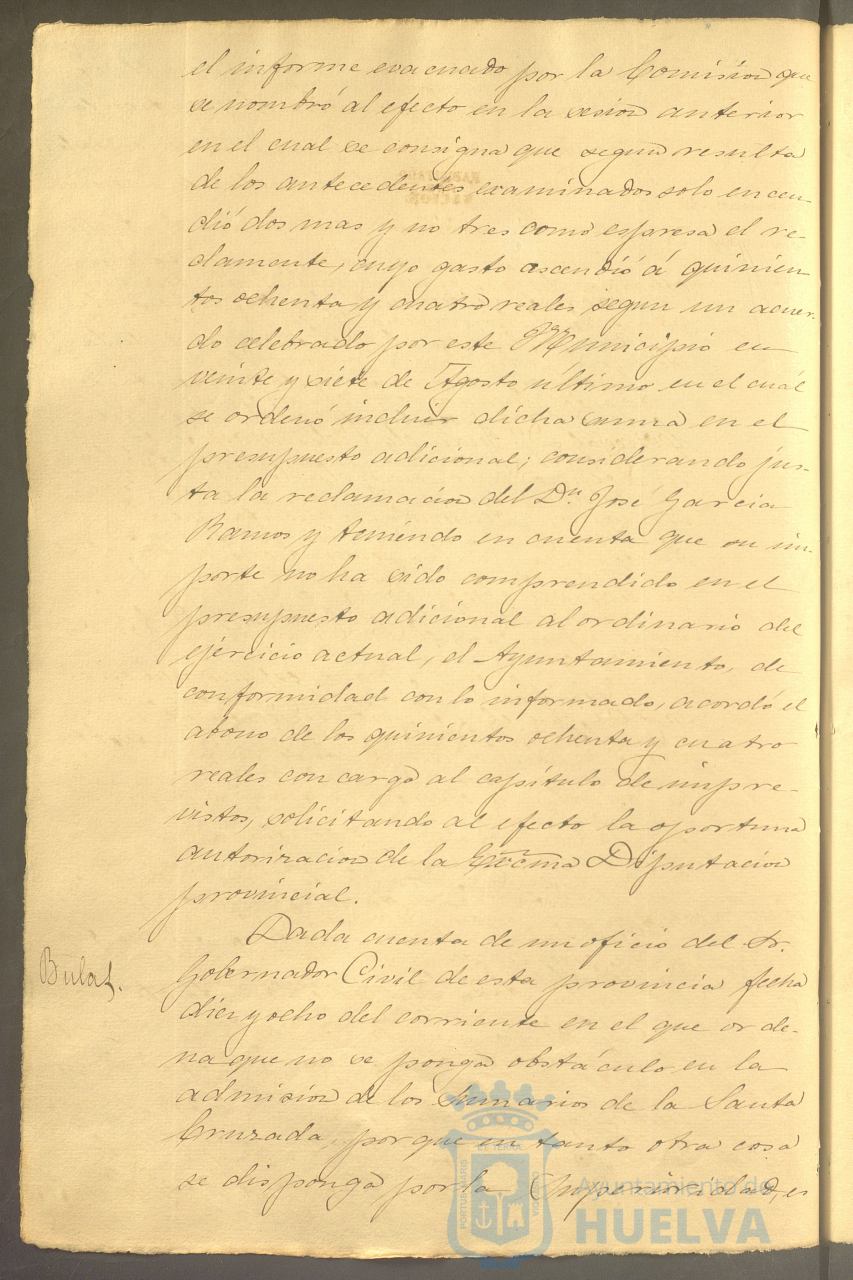 el informe evacuado por la Comision que
se nombró al efecto en la sesion anterior
en el cual se consigna que segun resulta
de los antecedentes examinados solo encen-
dió dos mas y no tres como espresa el re-
clamente, cuyo gasto ascendió á quinien-
tos ochenta y cuatro reales segun un acuer-
do celebrado por este Municipio en
veinte y siete de Agosto último en el cuál
se ordenó incluir dicha suma en el
presupuesto adicional; considerando jus-
ta la reclamacion del Dn. José Garcia
Ramos y teniendo en cuenta que su im-
porte no ha sido comprendido en el
presupuesto adicional al ordinario del
ejercicio actual, el Ayuntamiento, de
conformidad con lo informado, acordó el
abono de los quinientos ochenta y cuatro
reales con cargo al capítulo de impre-
vistos, solicitando al efecto la oportuna
autorizacion de la Excma Diputacion
provincial.
Dada cuenta de un oficio del Sr.
Bulas.
Gobernador Civil de esta provincia fecha
diez y ocho del corriente en el que orde-
na que no se ponga obstáculo en la
admision de los Sumarios de la Santa
Cruzada, porque en tanto otra cosa
se disponga por la Superioridad, es
Ayuntamiento de
HUELVA